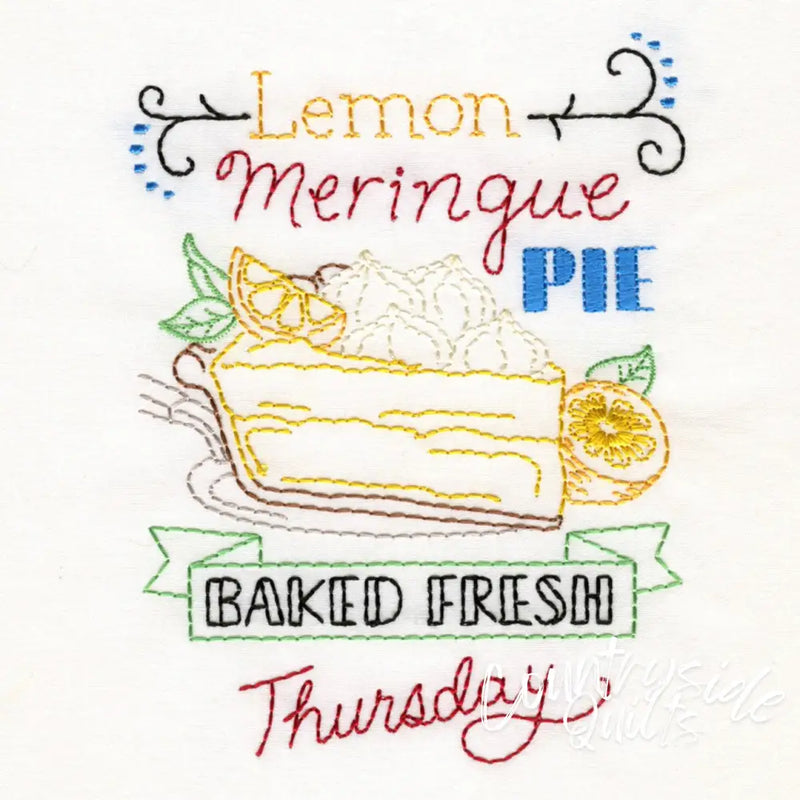 Lemon
Meringue
PIE
BAKED FRESH
Thursday
Countryside
Quilts